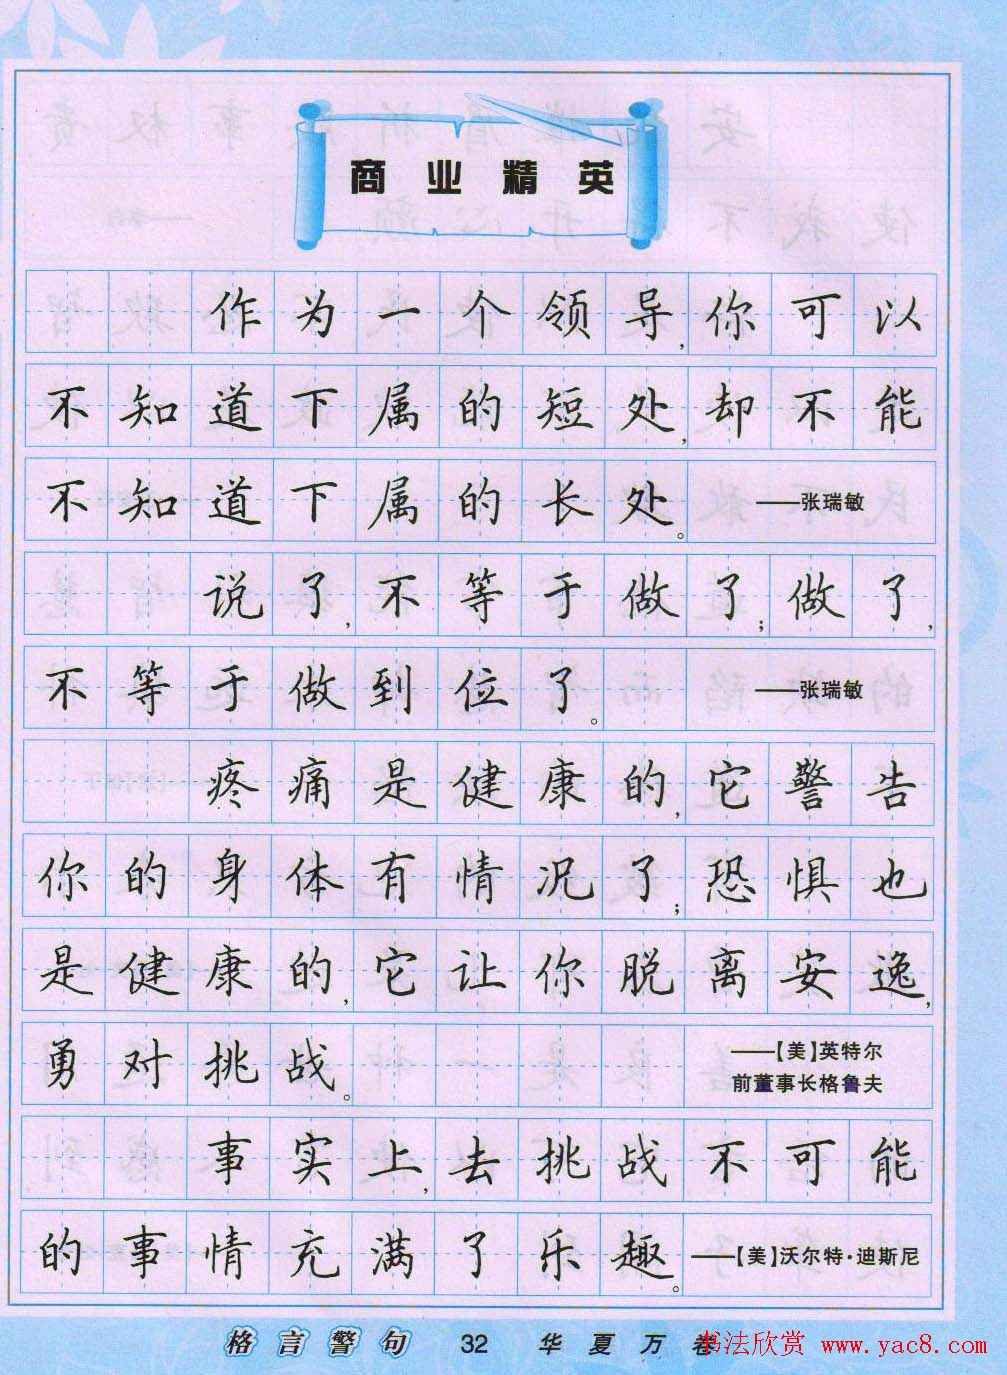 商业精英
作为一个领导,你可以
不知道下属的短处,却不能
不知道下属的长处。——张瑞敏
说了,不等于做了;做了,
不等于做到位了。——张瑞敏
疼痛是健康的,它警告
你的身体有情况了;恐惧也
是健康的,它让你脱离安逸,
勇对挑战。——【美】英特尔
前董事长格鲁夫
事实上,去挑战不可能
的事情充满了乐趣。——【美】沃尔特·迪斯尼
格言警句 32 华夏万卷
书法欣赏 www.yac8.com